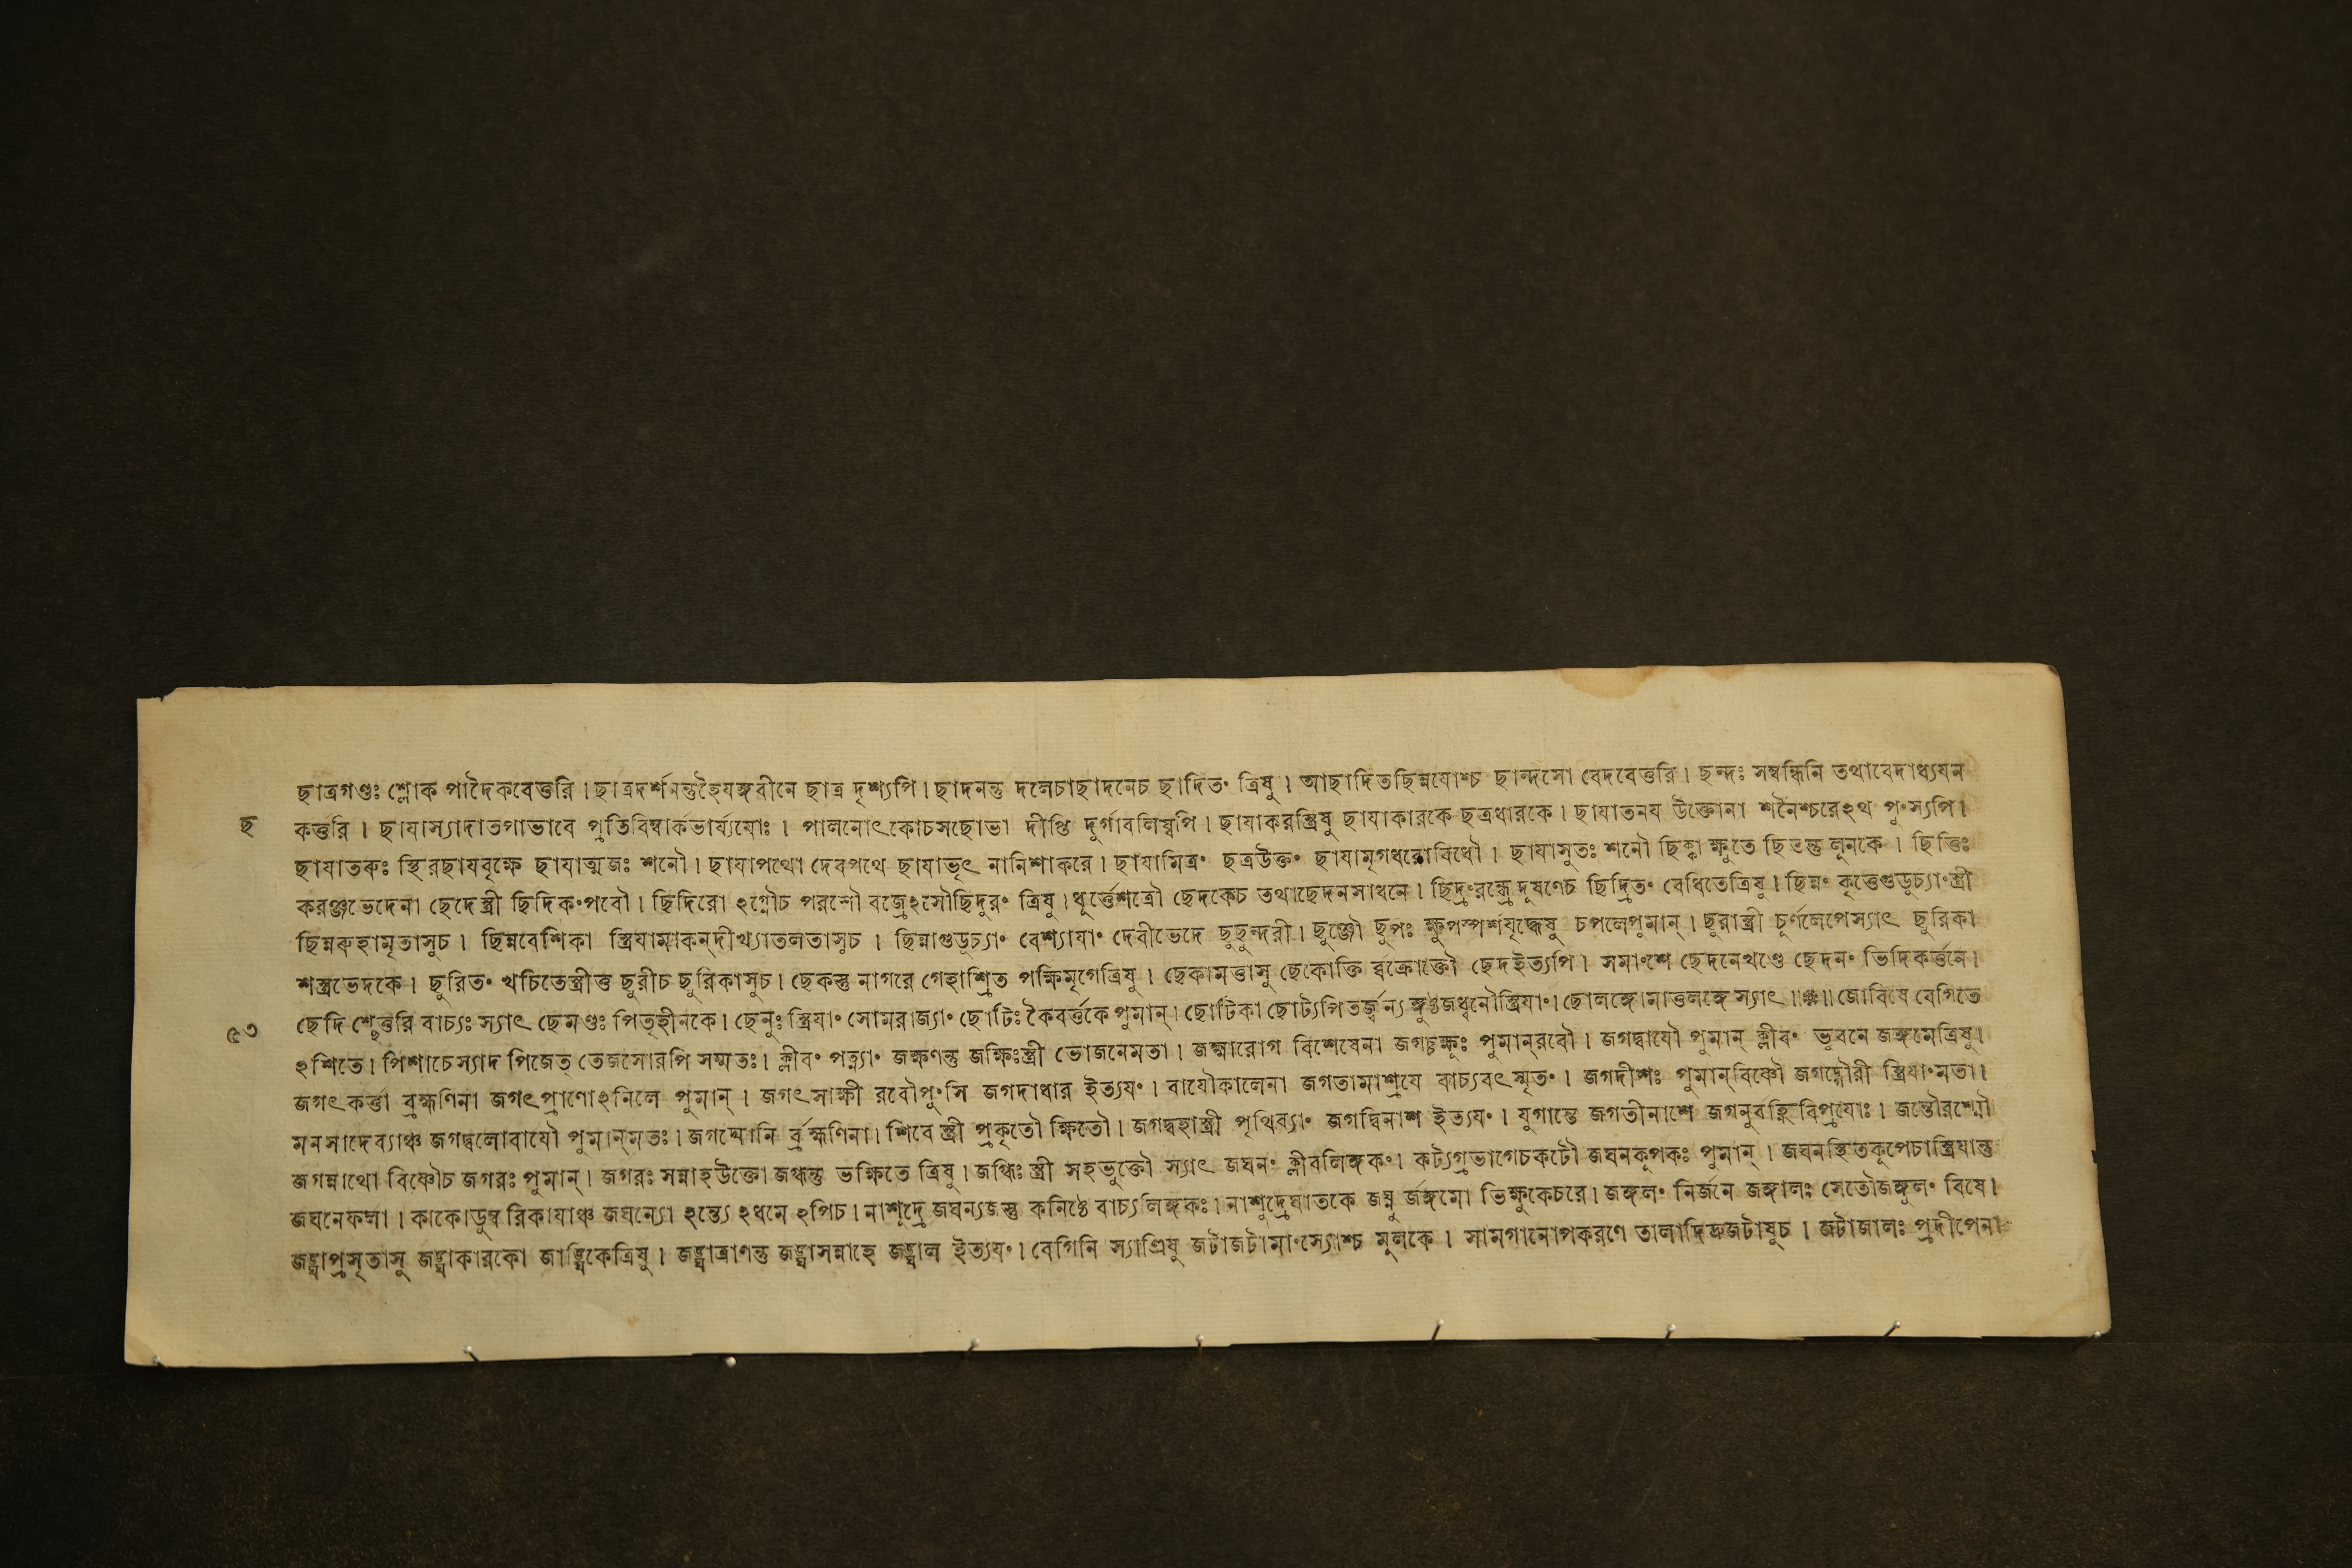 ছাত্রগণ্ডঃ শ্লোক পাদৈকবেত্তরি । ছাত্রদর্শনন্তুহৈযঙ্গবীনে ছাত্র দৃশ্যপি । ছাদনন্তু দলেচাছাদনেচ ছাদিতং ত্রিষু । আছাদিতছিন্নযোশ্চ ছান্দসো বেদবেত্তরি । ছন্দঃ সম্বন্ধিনি তথাবেদাধ্যযন
ছ
কর্ত্তরি । ছাযাস্যাদাতপাভাবে প্রতিবিম্বার্কভার্য্যযোঃ । পালনোৎকোচসছোভা দীপ্তি দুর্গাবলিষ্বপি । ছাযাকরস্ত্রিষু ছাযাকারকে ছত্রধারকে । ছাযাতনয উক্তোনা শনৈশ্চরেঽথ পুংস্যপি ।
ছাযাতরুঃ স্থিরছাযবৃক্ষে ছাযাত্মজঃ শনৌ । ছাযাপথো দেবপথে ছাযাভৃৎ নানিশাকরে । ছাযামিত্রং ছত্রউক্তং ছাযামৃগধরোবিধৌ । ছাযাসুতঃ শনৌ ছিক্কা ক্ষুতে ছিতন্তু লূনকে । ছিত্তিঃ
করঞ্জভেদেনা ছেদে স্ত্রী ছিদিকংপবৌ । ছিদিরো ঽগ্নৌচ পরশৌ বজ্রেঽসৌছিদুরং ত্রিষু । ধূর্ত্তেশত্রৌ ছেদকেচ তথাছেদনসাধনে । ছিদ্রংরন্ধ্রে দূষণেচ ছিদ্রিতং বেধিতেত্রিষু । ছিন্নং কৃত্তেগুডূচ্যাংস্ত্রী
ছিন্নরুহামৃতাসুচ । ছিন্নবেশিকা স্ত্রিযামাকন্দীখ্যাতলতাসুচ । ছিন্নাগুডূচ্যাং বেশ্যাযাং দেবীভেদে ছুছুন্দরী । ছুঞ্জৌ ছুপঃ ক্ষুপস্পর্শযুদ্ধেষু চপলেপুমান্ । ছুরাস্ত্রী চূর্ণলেপেস্যাৎ ছুরিকা
শস্ত্রভেদকে । ছুরিতং খচিতেস্ত্রীত্ত ছুরীচ ছুরিকাসুচ । ছেকস্তু নাগরে গেহাশ্রিত পক্ষিমৃগেত্রিষু । ছেকামত্তাসু ছেকোক্তি র্বক্রোক্তৌ ছেদইত্যপি । সমাংশে ছেদনেখণ্ডে ছেদনং ভিদিকর্ত্তনে ।
৫৩
ছেদি শ্ছেত্তরি বাচ্যঃ স্যাৎ ছেমণ্ডঃ পিতৃহীনকে । ছেনুঃ স্ত্রিযাং সোমরাজ্যাং ছোটিঃ কৈবর্ত্তকে পুমান্ । ছোটিকা ছোট্যপিতর্জ্জন্য ঙ্গুষ্ঠজধ্বনৌস্ত্রিযাং । ছোলঙ্গোমাতুলঙ্গে স্যাৎ ॥ * ॥ জোবিষে বেগিতে
ঽশিতে । পিশাচেস্যাদ পিজেতৃ তেজসোরপি সম্মতঃ । ক্লীবং পত্ন্যাং জক্ষণন্তু জক্ষিঃস্ত্রী ভোজনেমতা । জক্ষ্মারোগ বিশেষেনা জগচ্চক্ষুঃ পুমান্‌রবৌ । জগদ্বাযৌ পুমান্ ক্লীবং ভুবনে জঙ্গমেত্রিষু ।
জগৎকর্ত্তা ব্রহ্মণিনা জগৎপ্রাণোঽনিলে পুমান্ । জগৎসাক্ষী রবৌপুংসি জগদাধার ইত্যযং । বাযৌকালেনা জগতামাশ্রযে বাচ্যবৎ স্মৃতং । জগদীশঃ পুমান্‌বিষ্ণৌ জগদ্গৌরী স্ত্রিযাংমতা ।
মনসাদেব্যাঞ্চ জগদ্বলোবাযৌ পুমান্‌মতঃ । জগদ্যোনি র্ব্রহ্মণিনা । শিবে স্ত্রী প্রকৃতৌ ক্ষিতৌ । জগদ্বহাস্ত্রী পৃথিব্যাং জগদ্বিনাশ ইত্যযং । যুগান্তে জগতীনাশে জগনুর্বহ্নিবিপ্রযোঃ । জন্তৌরশ্মৌ
জগন্নাথো বিষ্ণৌচ জগরঃ পুমান্ । জগরঃ সন্নাহউক্তো জগ্ধন্তু ভক্ষিতে ত্রিষু । জগ্ধিঃ স্ত্রী সহভুক্তৌ স্যাৎ জঘনং ক্লীবলিঙ্গকং । কট্যগ্রভাগেচকটৌ জঘনকূপকঃ পুমান্ । জঘনস্থিতকূপেচাস্ত্রিযান্তু
জঘনেফলা । কাকোডুম্ব রিকাযাঞ্চ জঘন্যো ঽন্ত্যে ঽধমে ঽপিচ । নাশূদ্রে জঘন্যজস্তু কনিষ্ঠে বাচ্যলিঙ্গকঃ । নাশূদ্রেঘাতকে জঘ্নু র্জঙ্গমো ভিক্ষুকেচরে । জঙ্গলং নির্জনে জঙ্গালঃ সেতৌজঙ্গুলং বিষে ।
জঙ্ঘাপ্রসৃতাসু জঙ্ঘাকারকো জাঙ্ঘিকেত্রিষু । জঙ্ঘাত্রাণন্তু জঙ্ঘাসন্নাহে জঙ্ঘাল ইত্যযং । বেগিনি স্যাত্ত্রিষু জটাজটামাংস্যোশ্চ মূলকে । সামগানোপকরণে তালাদিষ্ক্রজটাষুচ । জটাজালঃ প্রদীপেনা